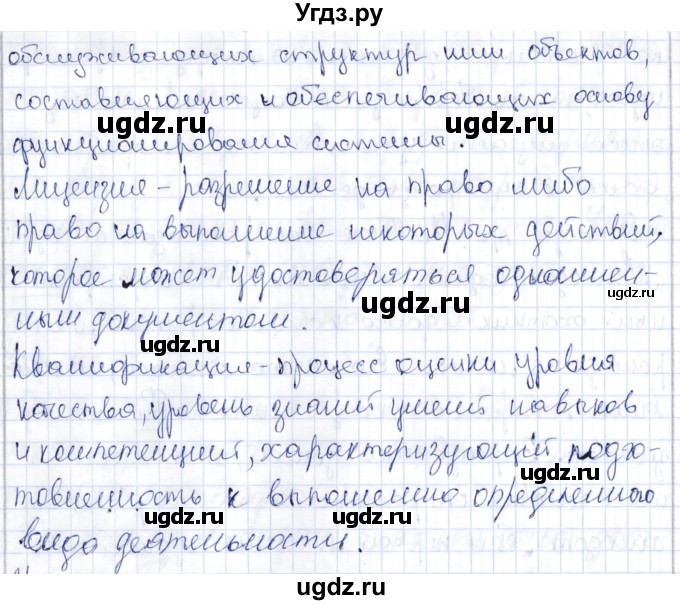 Угдз.ру
обслуживающих структур или объектов,
составляющих и обеспечивающих основу
ugdz.ru ugdz.ru
функционирования системы.
ugdz.ru
Лицензия - разрешение на право либо
право на выполнение некоторых действий,
ugdz.ru ugdz.ru
которое может удостоверяться одноимен-
ugdz.ru
ugdz.ru
ным документом.
ugdz.ru
Квалификация - процесс оценки уровня
качества, уровень знаний умений навыков
ugdz.ru ugdz.ru
и компетенций, характеризующий подго-
ugdz.ru
товленность к выполнению определенного
ugdz.ru ugdz.ru
вида деятельности.
ugdz.ru